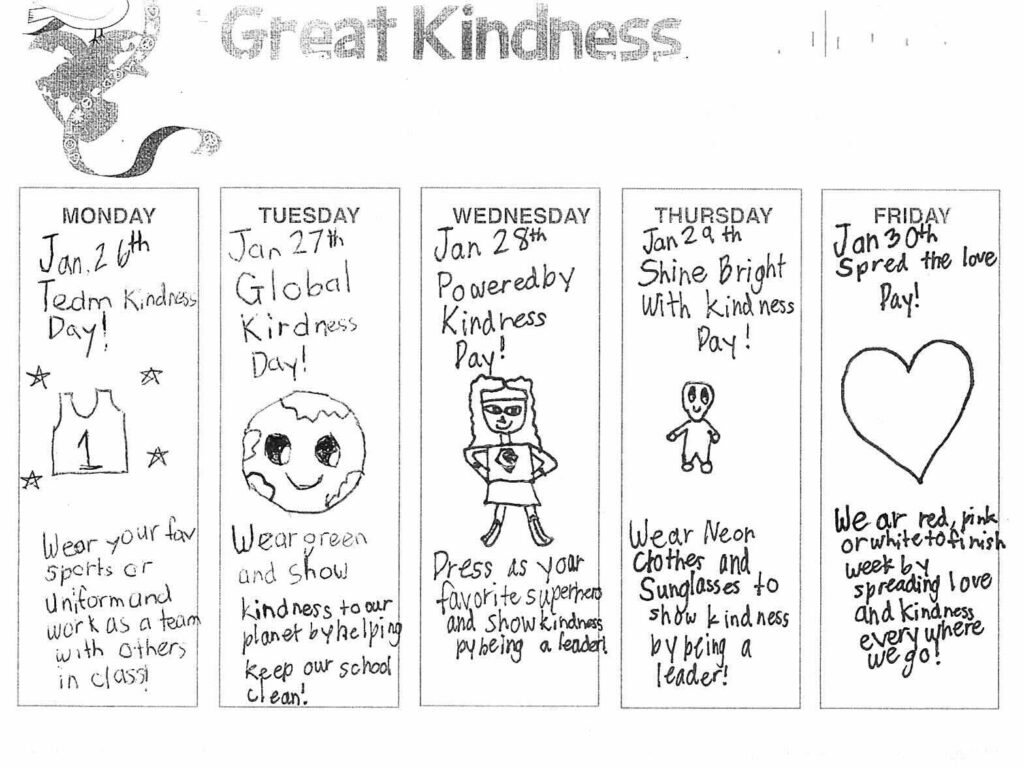 Great Kindness
MONDAY
Jan. 26th
Team Kindness
Day!
1
Wear your fav
sports or
uniform and
work as a team
with others
in class!
TUESDAY
Jan 27th
Global
Kirdness
Day!
Wear green
and show
kindness to our
planet by helping
keep our school
clean!
WEDNESDAY
Jan 28th
Powered by
Kindness
Day!
Dress as your
favorite superhero
and show kindness
by being a leader!
THURSDAY
Jan 29th
Shine Bright
With kindness
Day!
Wear Neon
Clothes and
Sunglasses to
show kindness
by being a
leader!
FRIDAY
Jan 30th
Spred the love
Day!
Wear red, pink
or white to finish
week by
spreading love
and Kindness
everywhere
we go!